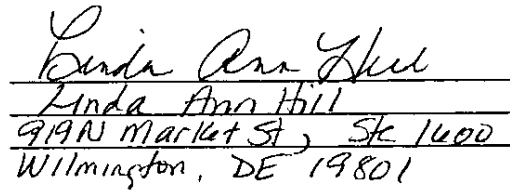 Linda Ann Hill
Linda Ann Hill
919 N Market St, Ste 1600
Wilmington, DE 19801